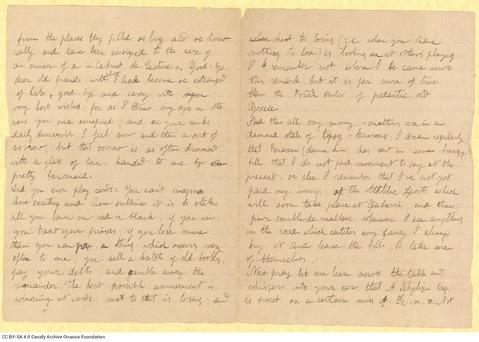 from the places they filled so long and so honor-
ably and have been consigned to the care of
an owner of a Cabinet de Lecture. Good-by
dear old friends with I had become so estranged
of late, good-by and carry with you
my best wishes, for as I throw my eyes on the
rows you once occupied, and as your ranks
daily diminish I feel now and then a sort of
sorrow, but that sorrow is as often drowned
with a glass of beer handed to me by
pretty barmaid.
Did you ever play cards? You can't imagine
how exciting and how sublime it is to stake
all you have on red or black; if you win
you treat your friends; if you lose more
than you can pay a thing which occurs very
often to me you sell a batch of old books
pay your debts, and gamble away the
remainder. The best possible amusement is
winning at cards. next to that is losing; and
when next to losing (i.e. when you have
nothing to lose) is looking on at others playing.
I remember not where I came across
this remark, but it is far more of true
than the trite of pedantic old
Greece.
And then all my money-matters are in a
damned state of topsy-turviness. I dream regularly
that has sent in some
bill that I do not find convenient to pay at the
present; or else I remember that I've not yet
paid my of the Athletic Sports which
will soon take place at Gabarri. and then,
pour comble de malheur whenever I see anything
in the road which catches my fancy I always
buy it and leave the bills to take care
of themselves!
Now pray let me lean across the table and
whisper into your ear that
is sweet on a certain miss